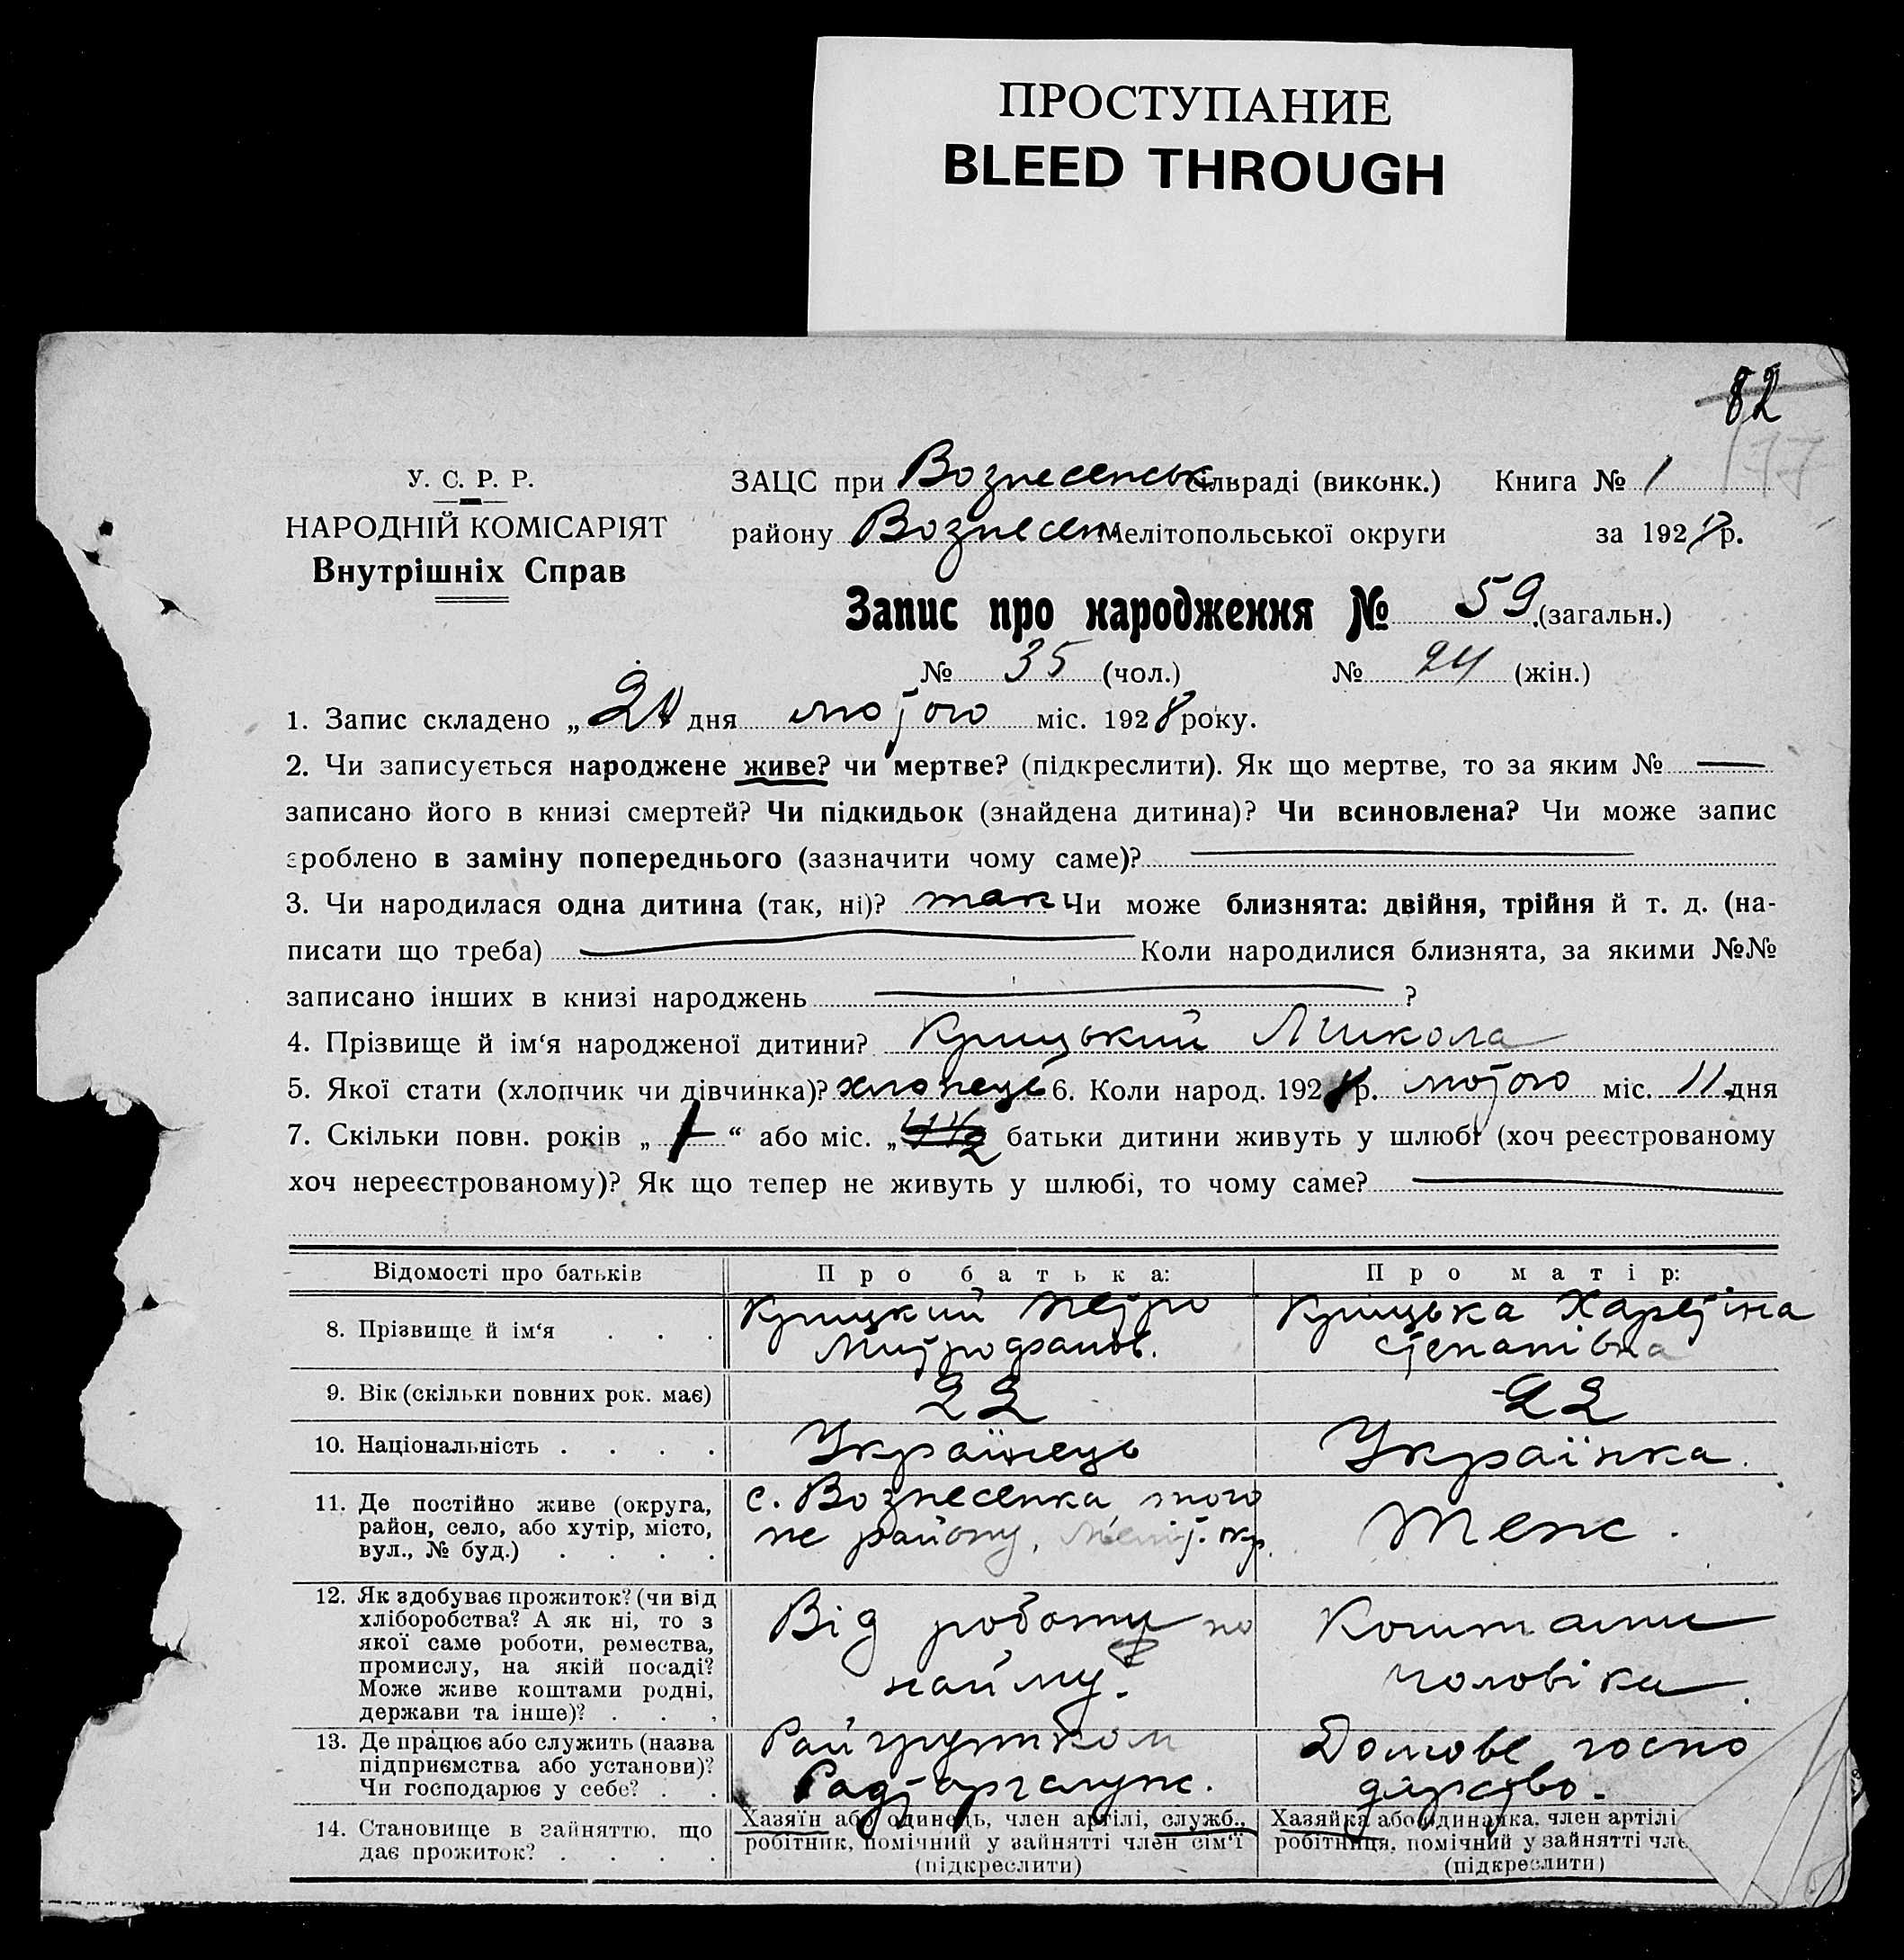 ПРОСТУПАНИЕ
BLEED THROUGH
82
177
У. С. Р. Р.
НАРОДНІЙ КОМІСАРІЯТ
Внутрішніх Справ
ЗАЦС при Вознесенськ. сільраді (виконк.) Книга № 1
району Вознесен Мелітопольської округи за 1928 р.
Запис про народження № 59 (загальн.)
№ 35 (чол.) № 24 (жін.)
1. Запис складено „ дня лютого міс. 1928 року.
2. Чи записується народжене живе? чи мертве? (підкреслити). Як що мертве, то за яким № —
записано його в книзі смертей? Чи підкидьок (знайдена дитина)? Чи всиновлена? Чи може запис
зроблено в заміну попереднього (зазначити чому саме)? —
3. Чи народилася одна дитина (так, ні)? так Чи може близнята: двійня, трійня й т. д. (на-
писати що треба) — Коли народилися близнята, за якими №№
записано інших в книзі народжень — ?
4. Прізвище й ім‘я народженої дитини? Крицький Микола
5. Якої стати (хлопчик чи дівчинка)? хлопець 6. Коли народ. 1928 р. лютого міс. 11 дня
7. Скільки повн. років „ 1 “ або міс. „ батьки дитини живуть у шлюбі (хоч реєстрованому
хоч нереєстрованому)? Як що тепер не живуть у шлюбі, то чому саме? —
Відомості про батьків
Про батька:
Про матір:
8. Прізвище й ім‘я . . .
Крицкий Петро
Митрофанов.
Крицька Харетіна
Степанівна
9. Вік (скільки повних рок. має)
22
22
10. Національність . . . .
Українець
Українка.
11. Де постійно живе (округа,
район, село, або хутір, місто,
вул., № буд.) . . . .
с. Вознесенка того
же району, Меліт. окр.
Теж.
12. Як здобуває прожиток? (чи від
хліборобства? А як ні, то з
якої саме роботи, ремества,
промислу, на якій посаді?
Може живе коштами родні,
держави та інше)? . . .
Від роботи по
найму.
Коштами
чоловіка.
13. Де працює або служить (назва
підприємства або установи)?
Чи господарює у себе? . .
Рад-торгслуж.
Домове госпо
дарство.
14. Становище в зайняттю, що
дає прожиток? . . . .
Хазяїн або одинець, член артілі, служб.,
робітник, помічний у зайнятті член сім‘ї
(підкреслити)
Хазяйка або одиначка, член артілі
робітниця, помічний у зайнятті чле
(підкреслити)